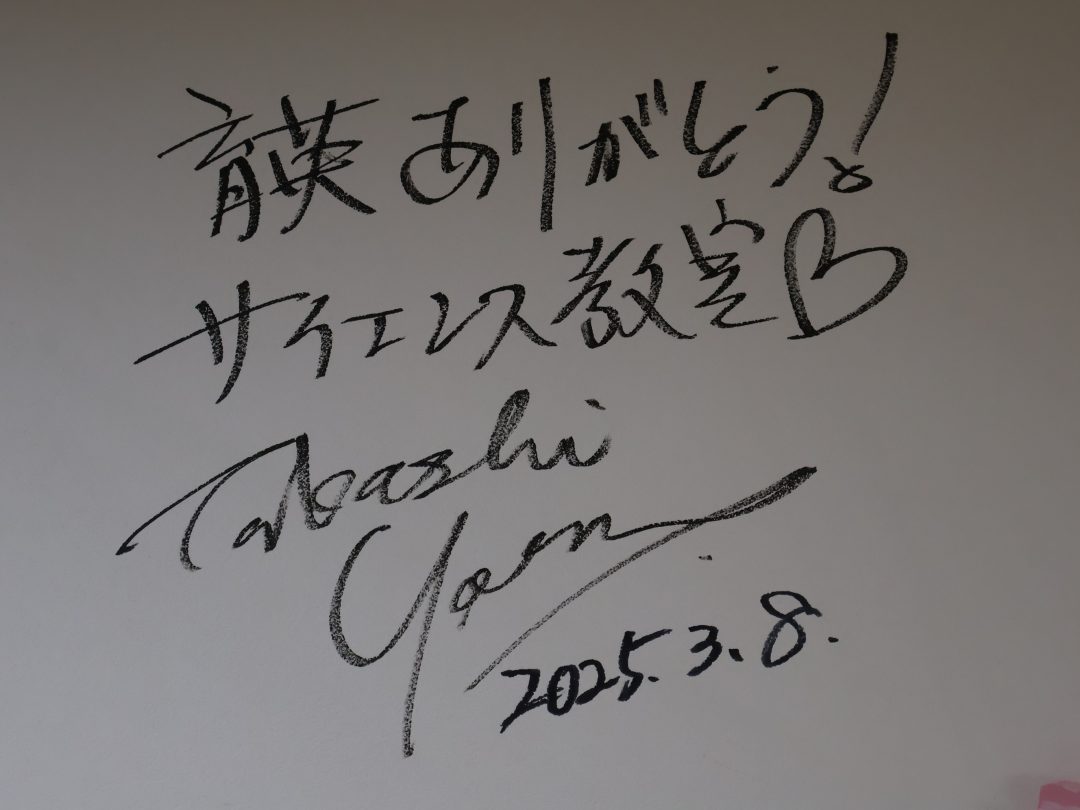 育英ありがとう!
サイエンス教室
Takashi
2025.3.8.